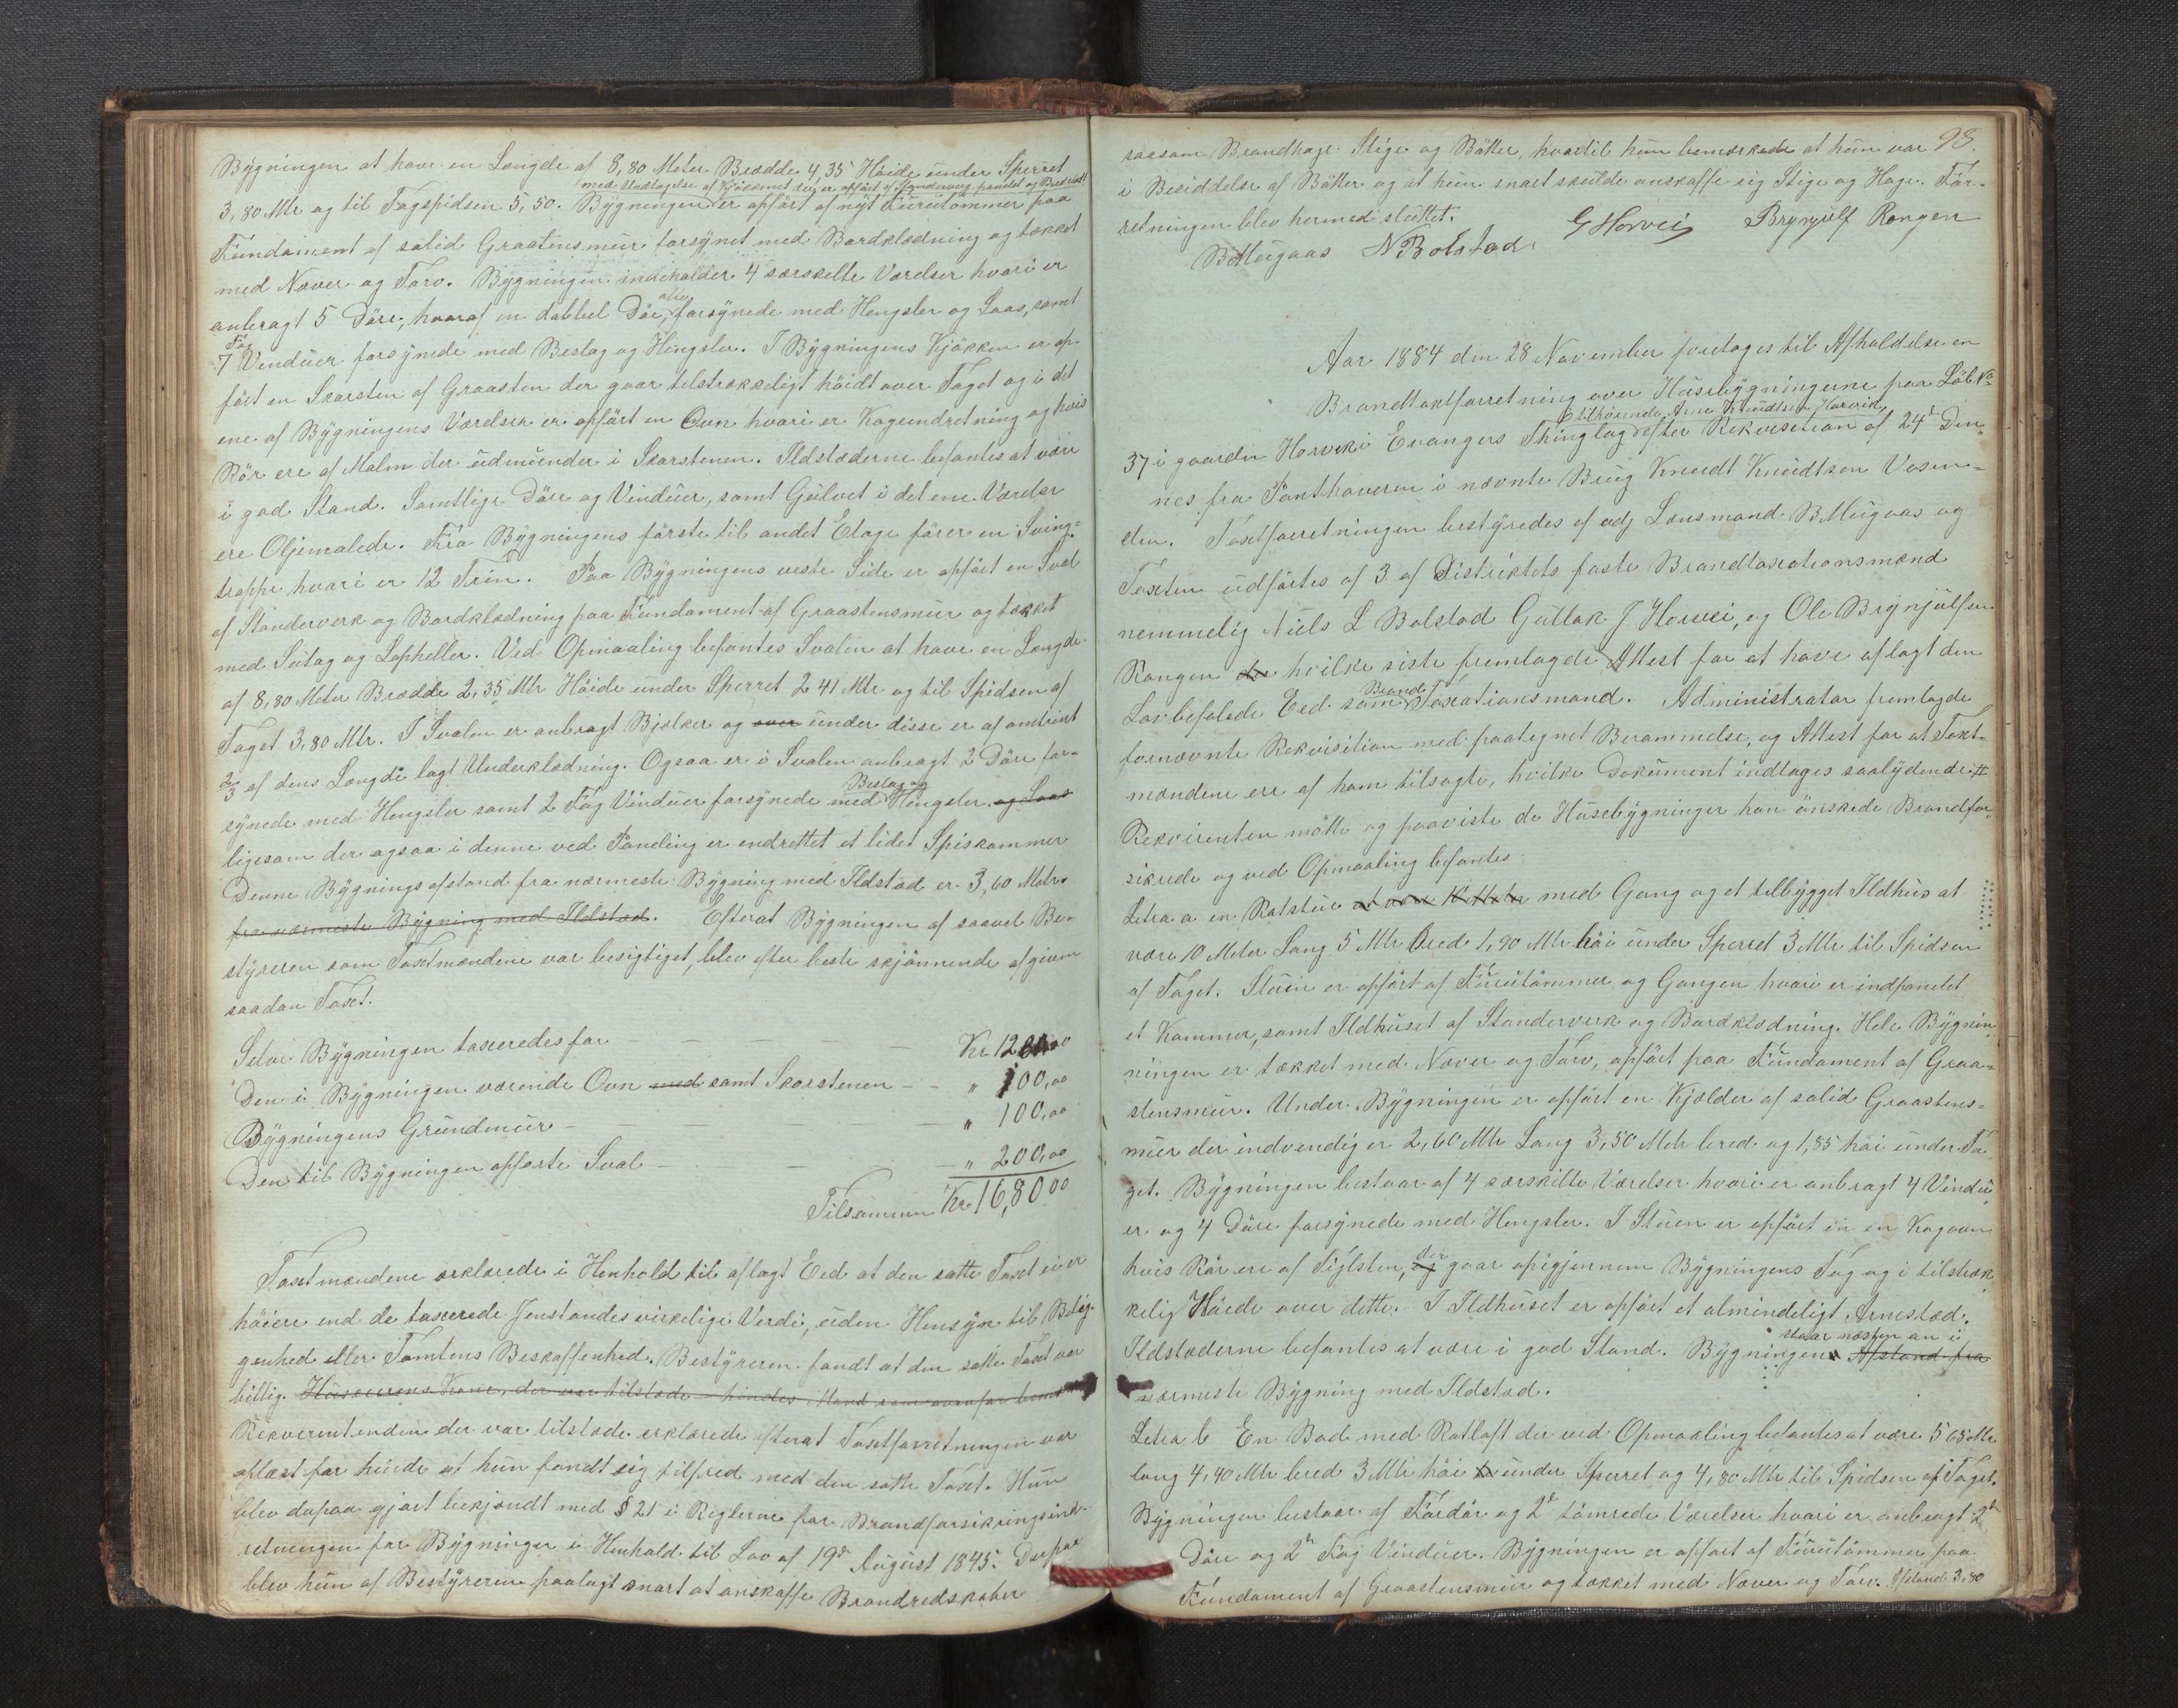 Bygningen at have en Længde af 8,80 Meter Bredde 4,35 Høide under Sperret
med Undtagelse af Kjøkkenet der er opført af Standerverk panelet og Bordklædt
3,80 Mtr og til Tagspidsen 5,50. Bygningen er opført af nyt Furutømmer paa
Fundament af solid Graastensmur forsynet med Bordklædning og tækket
med Næver og Torv. Bygningen indeholder 4 særskelte Værelser hvori er
anbragt 5 Døre, hvoraf en dobbel Dör, alle forsynede med Hengsler og Laas, samt
7 Fag Venduer forsynede med Beslag og Hengsler. I Bygningens Kjøkken er op-
ført en Skorsten af Graasten der gaar tilstrækkeligt høidt over Taget og i det
ene af Bygningens Værelser er opført en Ovn hvori er Kogeindretning og hvis
Rör ere af Malm der udmunder i Skorstenen. Ildstæderne befantes at være
i god Stand. Samtlige Döre og Vinduer, samt Gulvet i det ene Værelse
ere Oljemalede. Fra Bygningens første til andet Etage fører en Sving-
trappe hvori er 12 Trin. Paa Bygningens veste Side er opført en Sval
af Standerverk og Bordklædning paa Fundament af Graastensmur og tækket
med Sutag og Lapheller. Ved Opmaaling befantes Svalen at have en Længde
af 8,80 Meter Bredde 2,35 Mtr Høide under Sperret 2 41 Mtr og til Spidsen af
Taget 3,80 Mtr. I Svalen er anbragt Bjelker og over under disse er af omtrent
2/3 af dens Længde lagt Underklædning. Ogsaa er i Svalen anbragt 2 Döre for-
synede med Hengsler samt 2 Fag Vinduer forsynede med Beslag og Hengsler og Laas
ligesom der ogsaa i denne ved Paneling er endrettet et lidet Spiskammer
Denne Bygnings afstand fra nærmeste Bygning med Ildsted er 3,60 Meter
fra nærmeste Bygning med Ildsted. Efterat Bygningen af saavel Be-
styreren som Taxtmændene var besigtiget, blev efter beste skjønnende afgiven
saadan Taxt.
Selve Bygningen taxeredes for Kr. 1200,00
Den i Bygningen værende Ovn med samt Skorstenen " 100,00
Bygningens Grundmur " 100,00
Den til Bygningen opførte Sval " 200,00
Tilsammen Kr. 16,80 00
Taxtmændene erklærede i Henhold til aflagt Eed at den satte Taxt ei er
høiere end de taxerede Jenstandes virkelige Verdi, uden Hensyn til Belig-
genhed eller Tomtens Beskaffenhed. Bestyreren fandt at den satte Taxt var
billig. Huseierens Kone, der var tilstede hendes Mand som ovenfor bemt
Rekverentenden der var tilstede erklærede efterat Taxtforretningen var
oplæst for hende at hun fandt sig tilfred med den satte Taxt. Hun
blev dapaa gjort bekjendt med § 21 i Reglerne for Brandforsikringsind-
retningen for Bygninger i Henhold til Lov af 19de August 1845. Derpaa
blev hun af Bestyreren paalagt snart at anskaffe Brandredskaber
98.
saasom Brandhage Stige og Bøtter, hvortil hun bemærkede at hun var
i Besiddelse af Bøtter og at hun snart skulde anskaffe sig Stige og Hage. For-
retningen blev hermed sluttet.
G Horvei Brynjulf Rongen
B Mugaas N Bolstad
Aar 1884 den 28 November foretoges til Afholdelse en
Brandtaxtforretning over Husebygningerne paa Löb No
tilhørende Arne Knudtsen Horveid,
37 i gaarden Horvei Evangers Thinglag efter Rekvisition af 24de Den-
nes fra Panthaveren i nævnte Brug Knudt Knudtson Vasen-
den. Taxtforretningen bestyredes af adj Lensmand B Mugaas og
Taxten udførtes af 3 af Distriktets faste Brandtaxationsmænd
nemmelig Niels L Bolstad Gullak J Horvei, og Ole Brynjulfsen
Rongen der hvilke siste fremlagde Attest for at have aflagt den
Lovbefalede Eed som Brand Taxationsmand. Administrator fremlagde
fornævnte Rekvisition med paategnet Berammelse, og Attest for at Taxt-
mændene ere af ham tilsagte, hvilke Dokument indtages saalydende #
Rekvirenten mötte og paaviste de Husebygninger han önskede Brandfor-
sikrede og ved Opmaaling befantes
Letra a en Rotstue at være 10 Meter med Gang og et tilbygget Ildhus at
være 10 Meter Lang 5 Mtr Bred 1,90 Mtr höi under Sperret 3 Mtr til Spidsen
af Taget. Stuen er opført af Furutömmer og Gangen hvori er indpanelet
et Kammer, samt Ildhuset af Standerverk og Bordklædning. Hele Bygnin-
ningen er tækket med Næver og Torv, opført paa Fundament af Graa-
stensmur. Under Bygningen er opført en Kjælder af solid Graastens-
mur der indvendig er 2,60 Mtr Lang 3,50 Mtr bred og 1,85 höi under Ta-
get. Bygningen bestaar af 4 særskilte Værelser hvori er anbragt 4 Vindu-
er og 4 Döre forsynede med Hengsler. I Stuen er opført en en Kogovn
hvis Rör ere af Tiglsten, og der gaar opigjennem Bygningens Tag og i tilstræk-
kelig Høide over dette. I Ildhuset er opført et almindeligt Arnested.
Ildstæderne befantes at være i god Stand. Bygningens Afstand fra staar næsten an i
nærmeste Bygning med Ildsted.
Letra b En Bod med Rotloft der ved Opmaaling befantes at være 5 65 Mtr
lang 4,40 Mtr bred 3 Mtr höi under Sperret og 4,80 Mtr til Spidsen af Taget.
Bygningen bestaar af Fördör og 2de tömrede Værelser hvori er anbragt 2de
Döre og 2de Fag Vinduer. Bygningen er opført af Furutömmer paa
Fundament af Graastensmur og tækket med Næver og Torv. Afstand 3,80